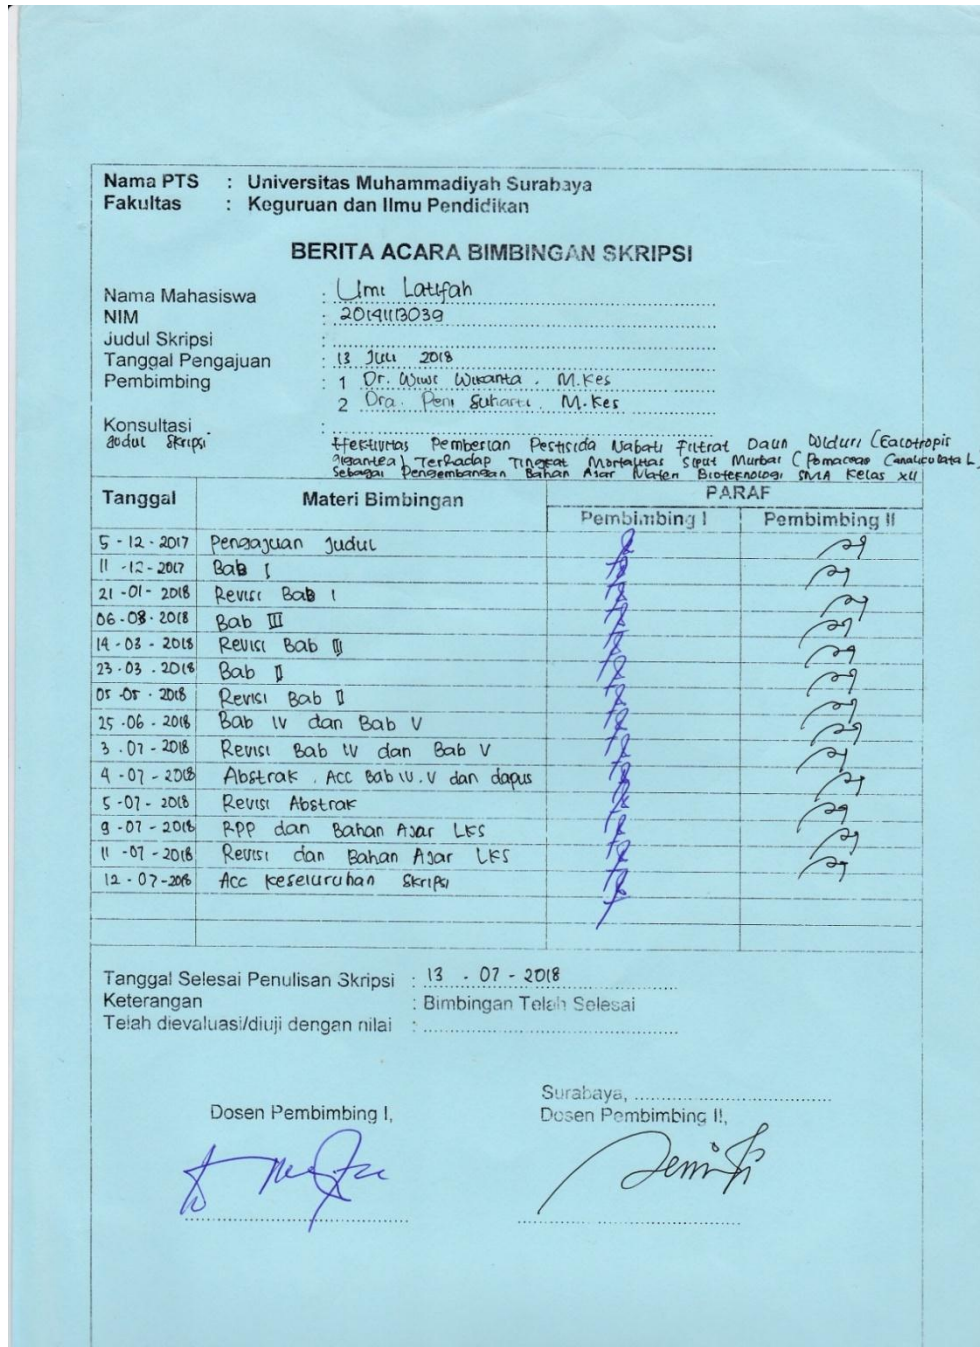 Nama PTS : Universitas Muhammadiyah Surabaya
Fakultas : Keguruan dan Ilmu Pendidikan
BERITA ACARA BIMBINGAN SKRIPSI
Nama Mahasiswa : Umi Latifah
NIM : 20141113039
Judul Skripsi :
Tanggal Pengajuan : 13 Juli 2018
Pembimbing : 1 Dr. Wiwi Wikanta. M.Kes
2 Dra. Peni Suharti. M.Kes
Konsultasi :
Judul Skripsi
Efektivitas Pemberian Pestisida Nabati Filtrat Daun Widuri (Calotropis
Gigantea) Terhadap Tingkat Mortalitas Siput Murbai (Pomaceae Canaliculata L)
Sebagai Pengembangan Bahan Ajar Materi Bioteknologi SMA Kelas XII
Tanggal Materi Bimbingan PARAF
Pembimbing I Pembimbing II
5 - 12 - 2017 Pengajuan Judul
11 - 12 - 2017 Bab I
21 - 01 - 2018 Revisi Bab I
06 - 03 - 2018 Bab III
14 - 03 - 2018 Revisi Bab III
23 - 03 - 2018 Bab II
05 - 05 - 2018 Revisi Bab II
25 - 06 - 2018 Bab IV dan Bab V
3 - 07 - 2018 Revisi Bab IV dan Bab V
4 - 07 - 2018 Abstrak. Acc Bab IV. V dan dapus
5 - 07 - 2018 Revisi Abstrak
9 - 07 - 2018 RPP dan Bahan Ajar LKS
11 - 07 - 2018 Revisi dan Bahan Ajar LKS
12 - 07 - 2018 Acc keseluruhan Skripsi
Tanggal Selesai Penulisan Skripsi : 13 - 07 - 2018
Keterangan : Bimbingan Telah Selesai
Telah dievaluasi/diuji dengan nilai :
Surabaya,
Dosen Pembimbing I, Dosen Pembimbing II,